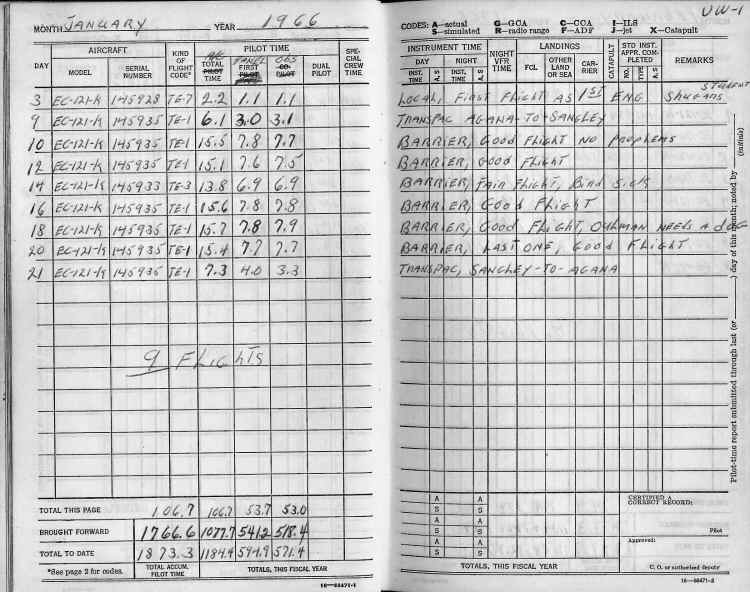 MONTH JANUARY YEAR 1966
AIRCRAFT KIND OF FLIGHT CODE* PILOT TIME SPECIAL CREW TIME
DAY MODEL SERIAL NUMBER TOTAL PILOT TIME PANEL FIRST PILOT OBS CO-PILOT DUAL PILOT
3 EC-121-K 145928 TE-7 2.2 1.1 1.1
9 EC-121-K 145935 TE-1 6.1 3.0 3.1
10 EC-121-K 145935 TE-1 15.5 7.8 7.7
12 EC-121-K 145935 TE-1 15.1 7.6 7.5
14 EC-121-K 145933 TE-3 13.8 6.9 6.9
16 EC-121-K 145935 TE-1 15.6 7.8 7.8
18 EC-121-K 145935 TE-1 15.7 7.8 7.9
20 EC-121-K 145935 TE-1 15.4 7.7 7.7
21 EC-121-K 145935 TE-1 7.3 4.0 3.3
9 FLIGHTS
TOTAL THIS PAGE 106.7 106.7 53.7 53.0
BROUGHT FORWARD 1766.6 1077.7 541.2 518.4
TOTAL TO DATE 1873.3 1184.4 594.9 571.4
*See page 2 for codes. TOTAL ACCUM. PILOT TIME TOTALS, THIS FISCAL YEAR
16—68471-1
UW-1
CODES: A—actual G—GCA C—CCA I—ILS
S—simulated R—radio range F—ADF J—jet X—Catapult
INSTRUMENT TIME NIGHT VFR TIME LANDINGS CATAPULT STD INST. APPR. COMPLETED REMARKS
DAY NIGHT FCL OTHER LAND OR SEA CARRIER NO. TYPE A S
INST. TIME A. S INST. TIME A. S
STUDENT
LOCAL, FIRST FLIGHT AS 1ST ENG SHUGARS
TRANSPAC AGANA-TO-SANGLEY
BARRIER, GOOD FLIGHT NO PROBLEMS
BARRIER, GOOD FLIGHT
BARRIER, FAIR FLIGHT, BIRD SICK
BARRIER, GOOD FLIGHT
BARRIER, GOOD FLIGHT, NEEDS A dOG
BARRIER, LAST ONE, GOOD FLIGHT
TRANSPAC, SANGLEY-TO-AGANA
A A
S S
A A
S S
A A
S S
CERTIFIED A CORRECT RECORD:
Pilot
Approved:
C. O. or authorized deputy
TOTALS, THIS FISCAL YEAR
16—68471-2
Pilot-time report submitted through last (or ) day of this month; noted by (init/ials)